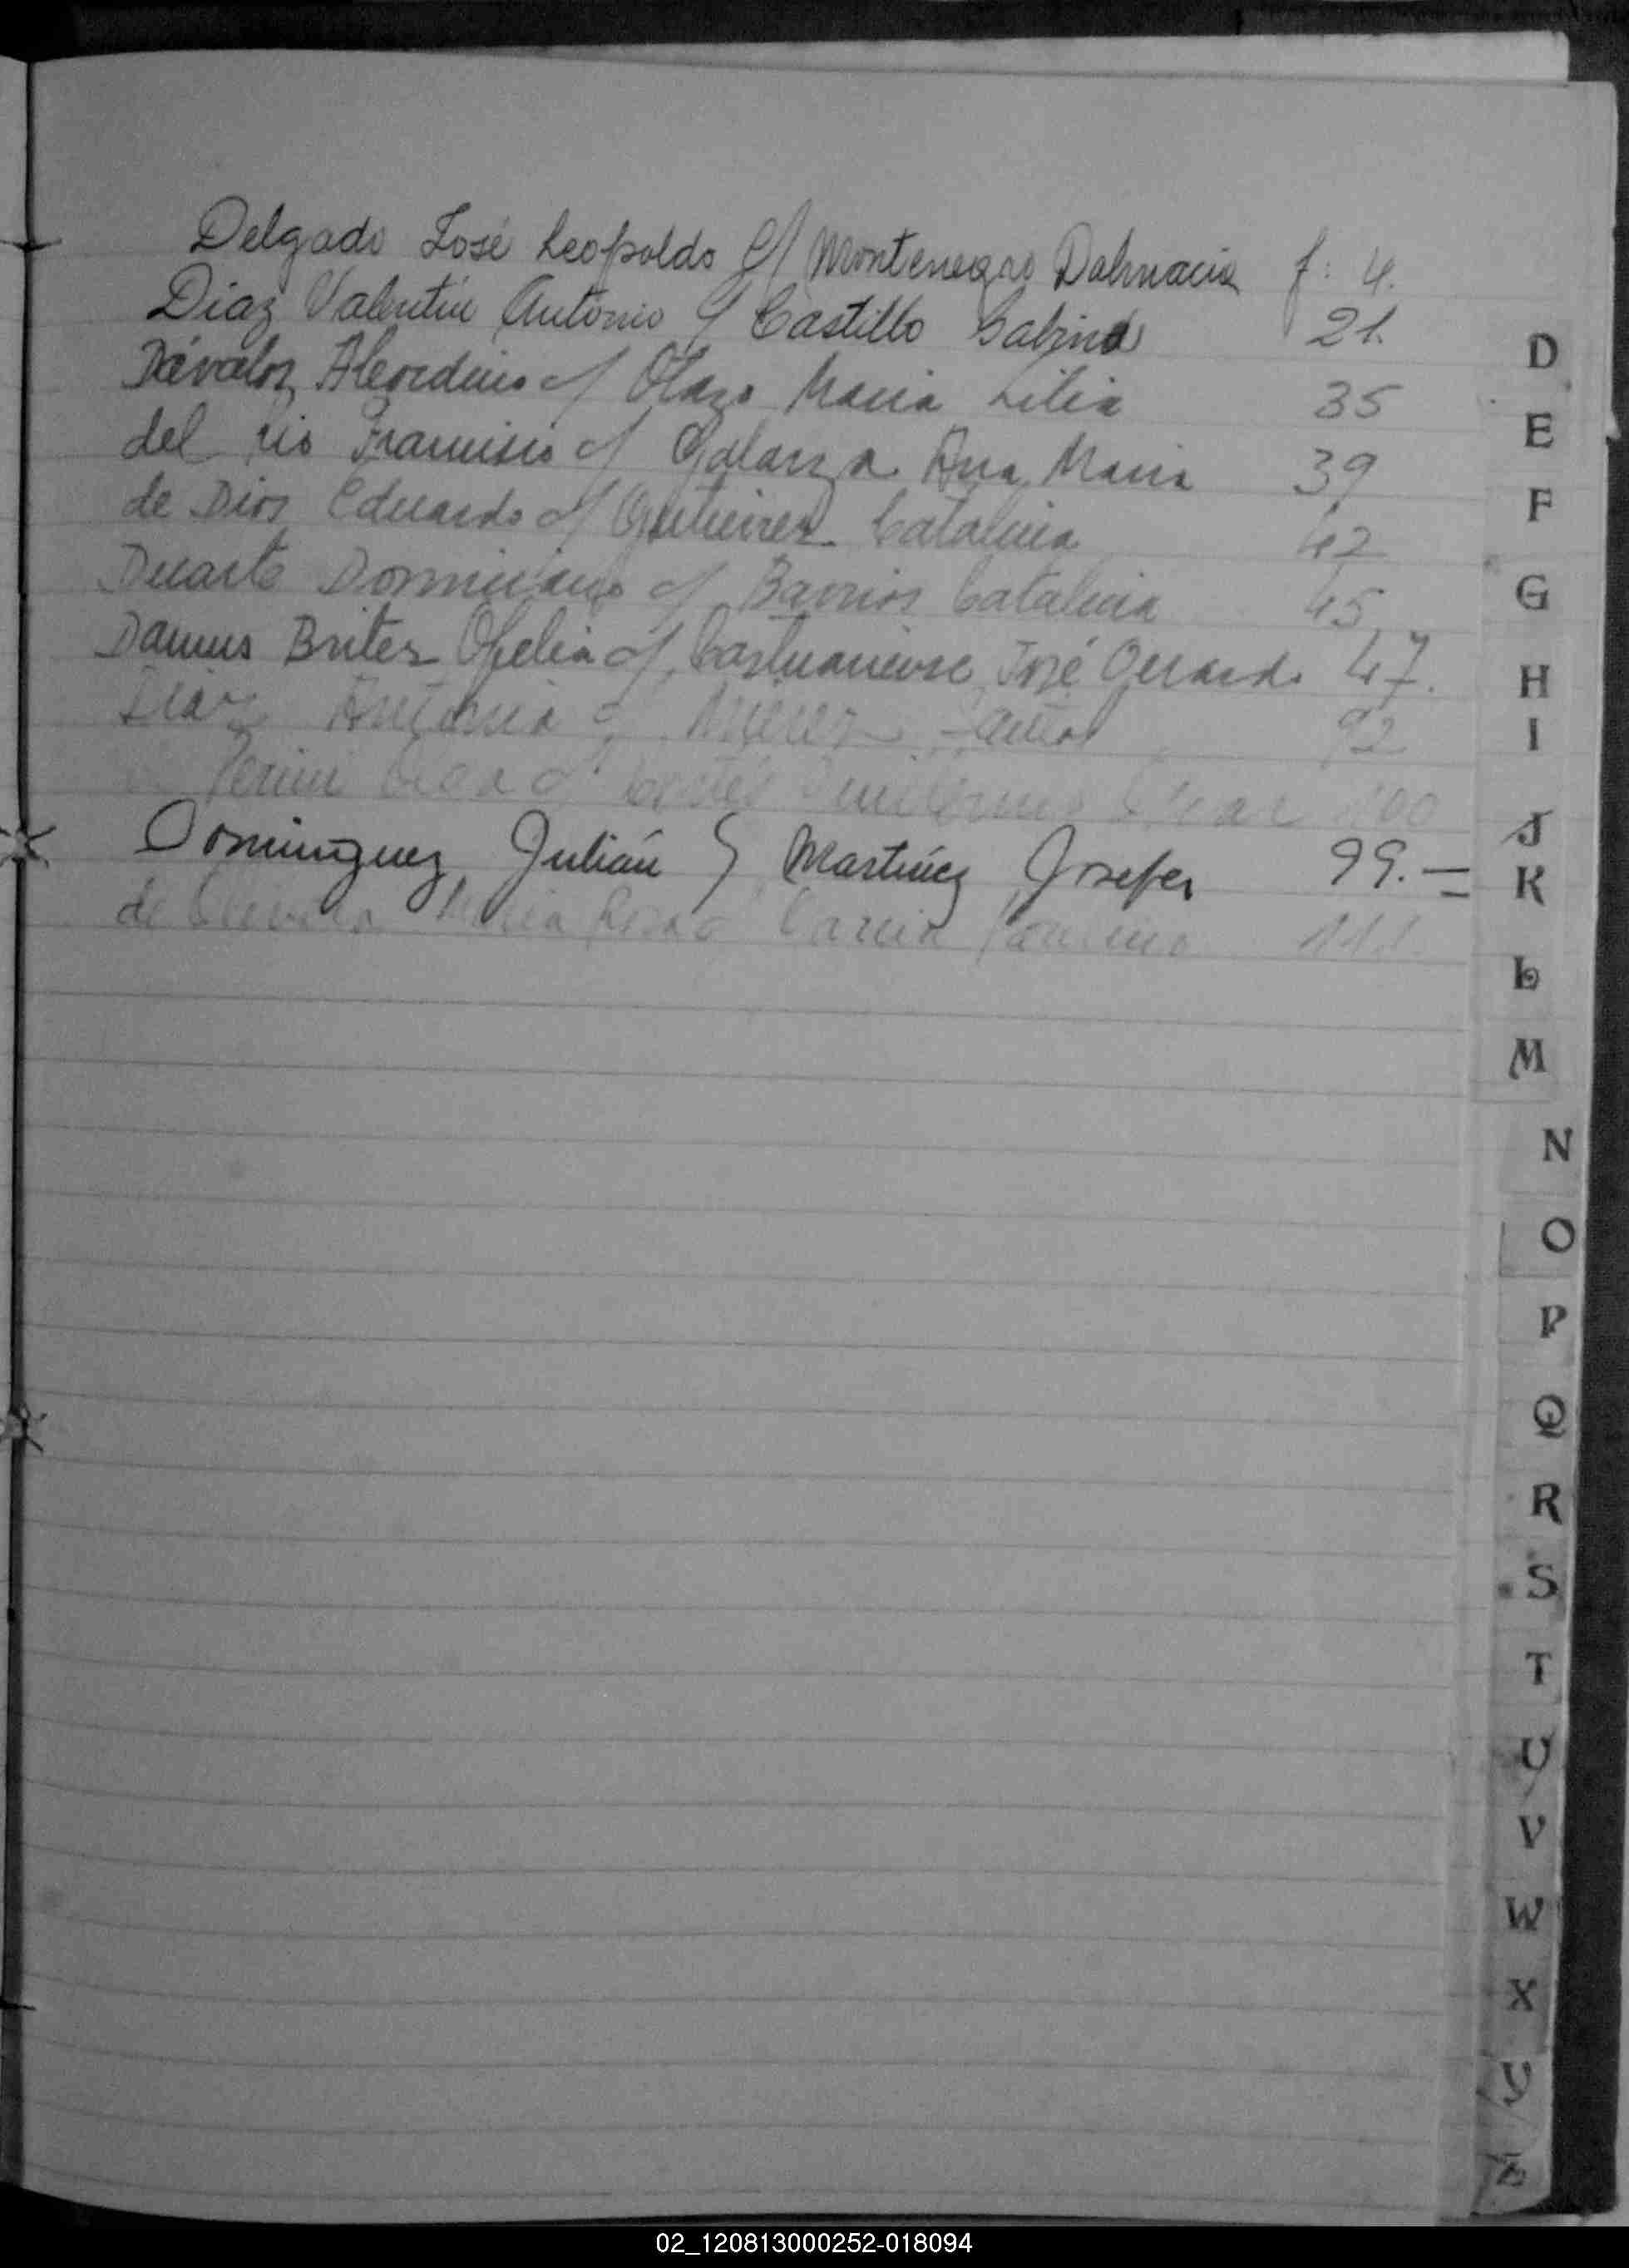 Delgado José Leopoldo c/ Montenegro Dalmacia f: 4.
Diaz Valentín Antonio c/ Castillo Sabina 21.
Dávalos c/ Olazo Maria Lilia 35
del rio Francisco c/ Galarza Ana Maria 39
de Dios Eduardo c/ Gutierrez Catalina 42
Duarte Domiciano c/ Barrios Catalina 45
Damus Brites Ofelia c/ José Gerardo 47.
Diaz Antonia c/ 92
Olga c/ Cortés Guillermo 100
Dominguez Julián c/ Martínez Josefa 99.=
de Maria Rosa c/ 111.
D
E
F
G
H
I
J
K
L
M
N
O
P
Q
R
S
T
U
V
W
X
Y
Z
02_120813000252-018094